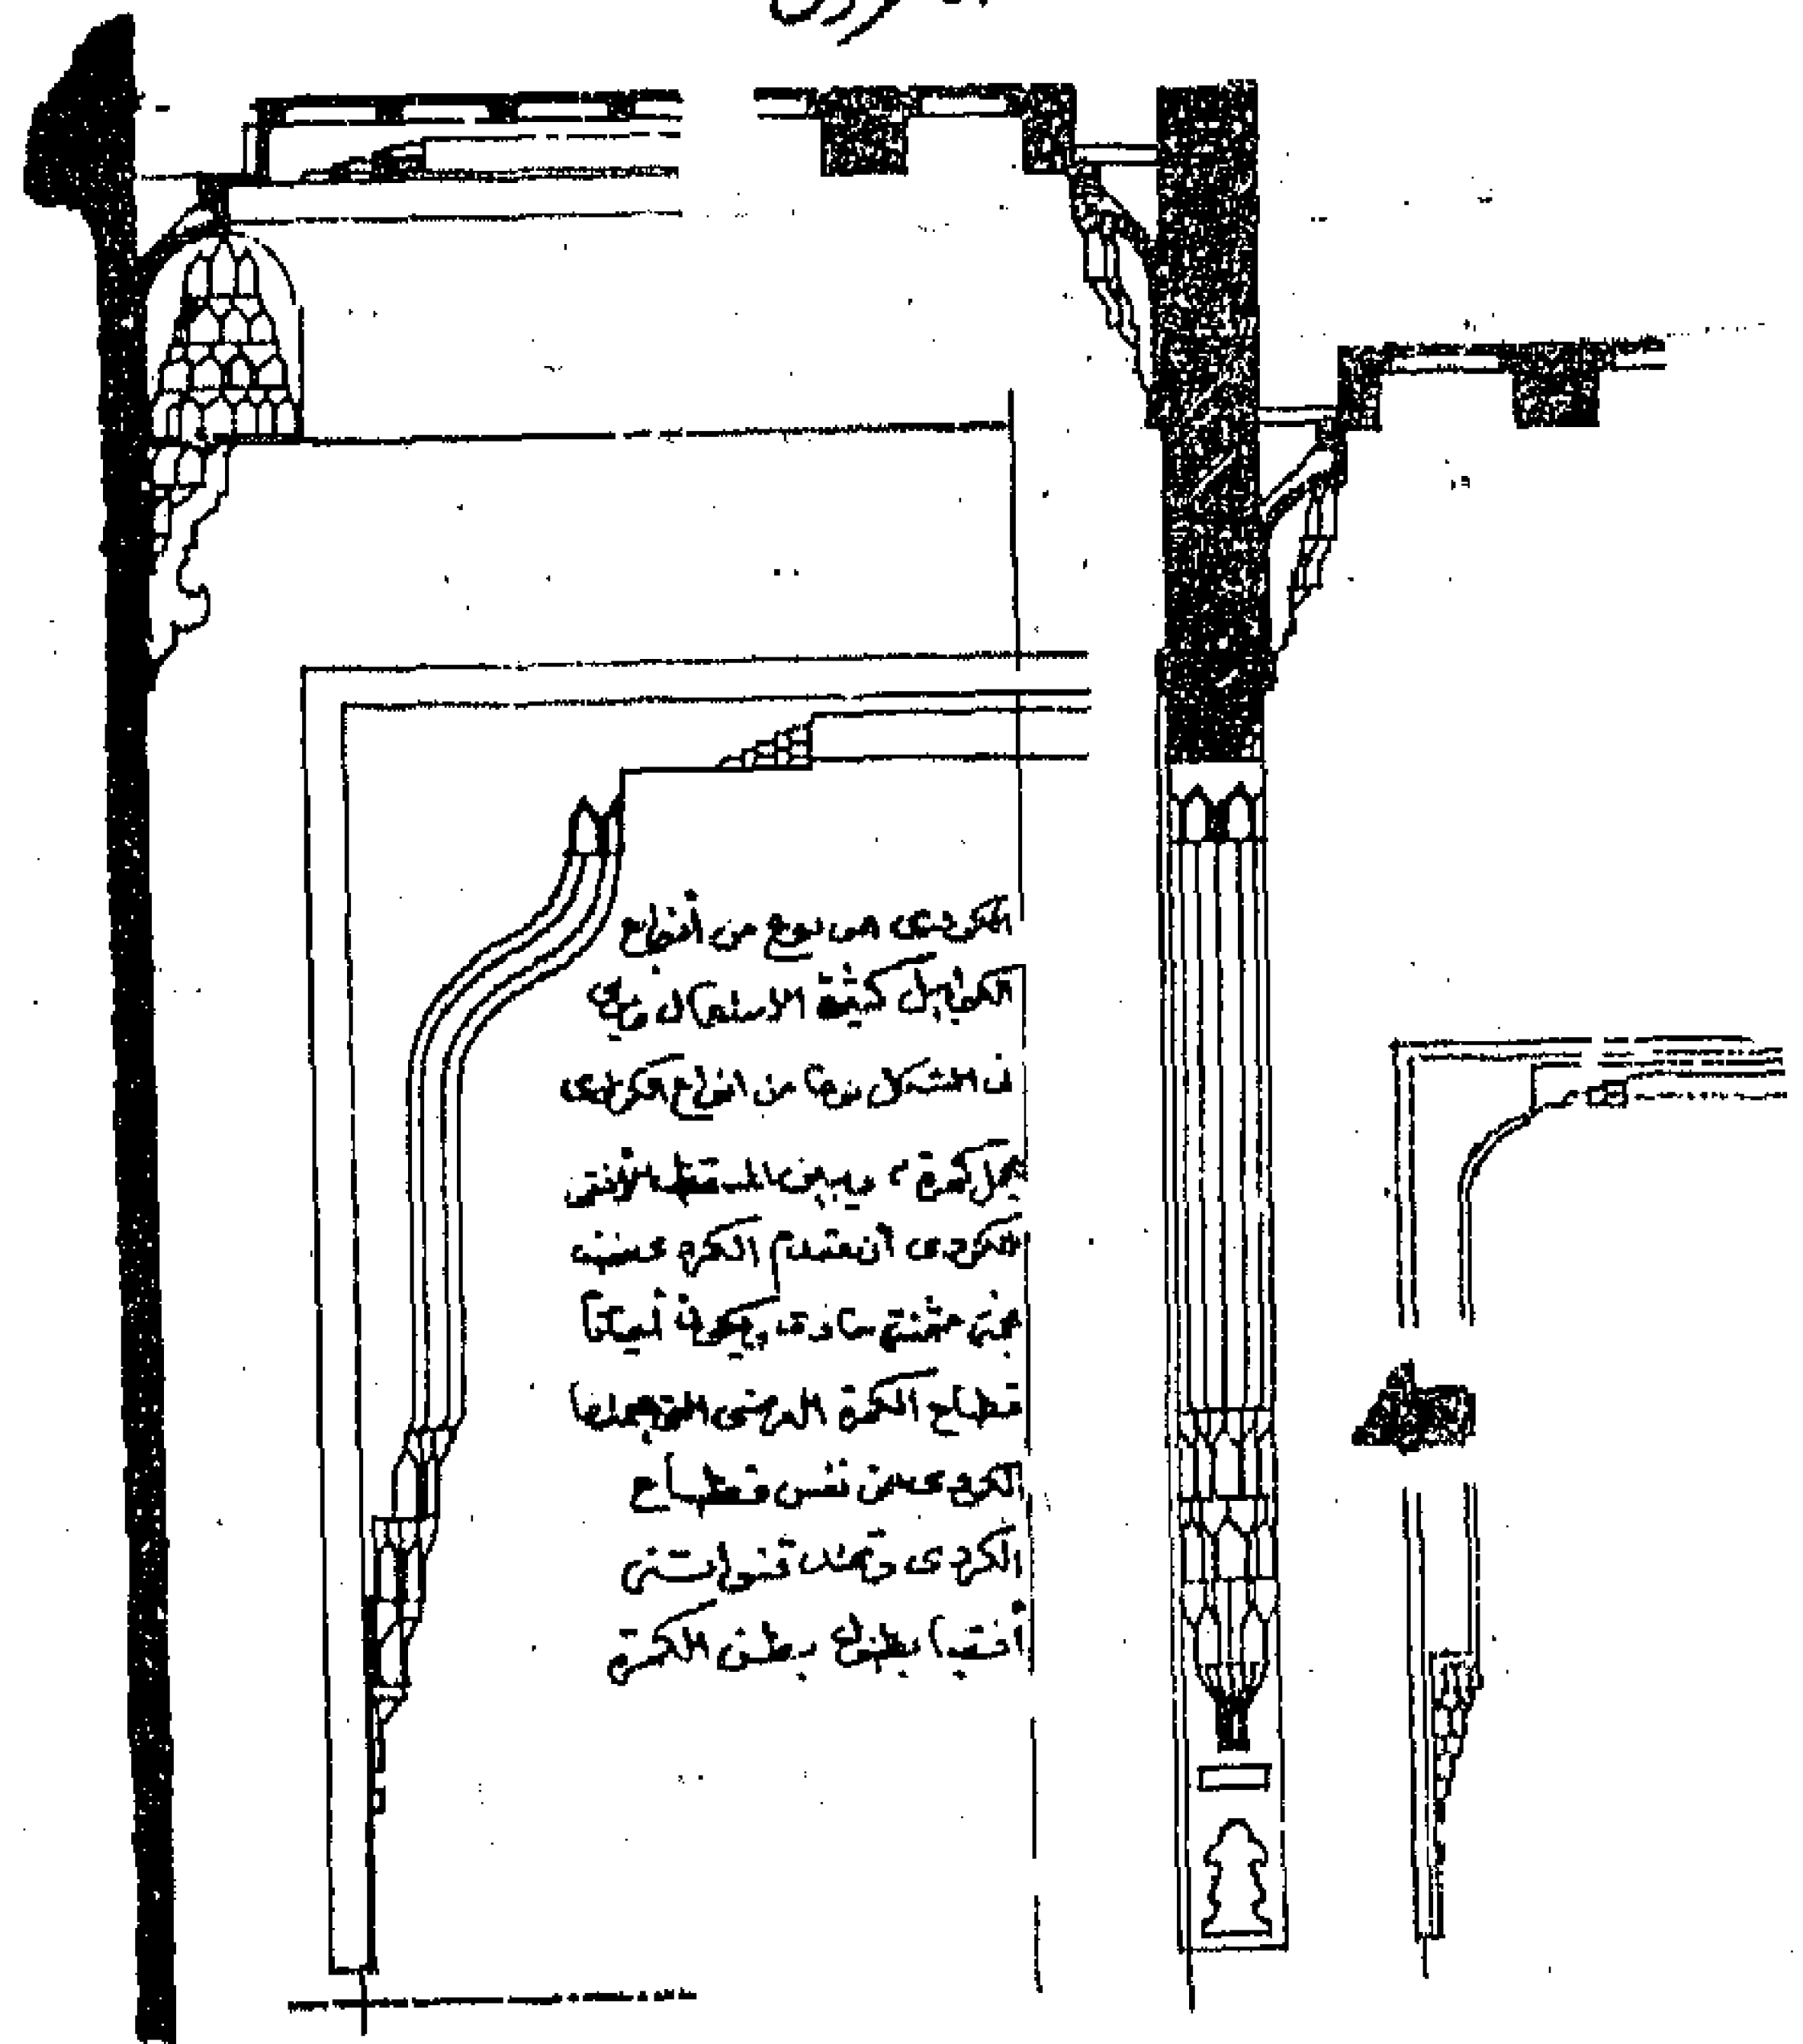 الكردى هى نوع من أنواع
الكوابيل كثيرة الاستعمال وترى
فى الشكل نوعا من انواع الكرادى
يحمل كمرة ، ويبين المسقط الأفقى
للكردى أن مقدم الكردى
مثمنة ويكون أحيانا
قطاع الكمرة العرضى التى يحملها
الكردى من نفس قطاع
الكردى وتمتد
أفقيا بطول بطن الكمرة